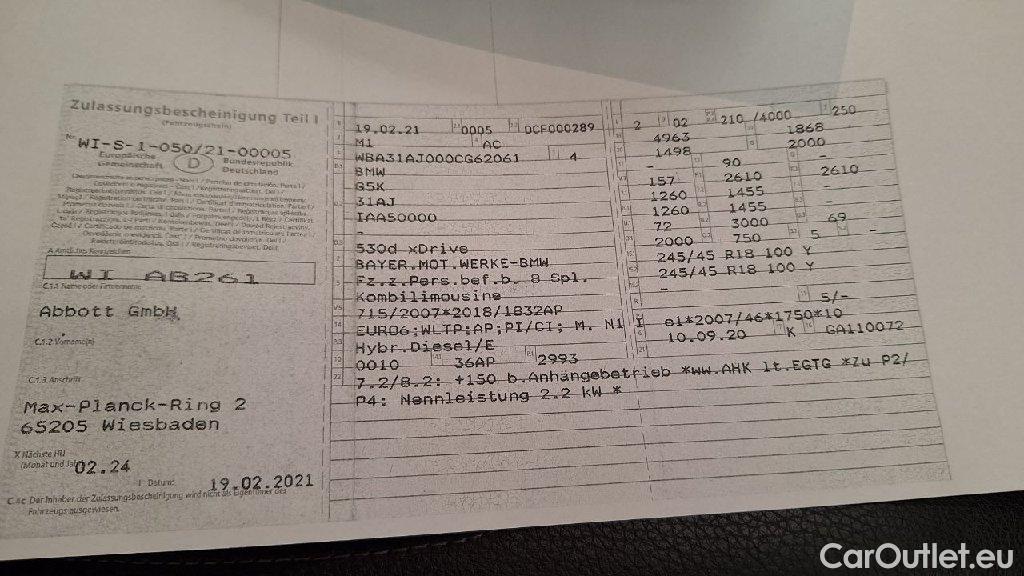 Zulassungsbescheinigung Teil I
(Fahrzeugschein)
Nr. WI-S-1-050/21-00005
Europäische Gemeinschaft D Bundesrepublik Deutschland
A Amtliches Kennzeichen
WI AB261
C.1.1 Name oder Firmenname
Abbott GmbH
C.1.2 Vorname(n)
C.1.3 Anschrift
Max-Planck-Ring 2
65205 Wiesbaden
X Nächste HU
(Monat und Jahr) 02.24
I Datum: 19.02.2021
C.4c Der Inhaber der Zulassungsbescheinigung wird nicht als Eigentümer des
Fahrzeugs ausgewiesen.
19.02.21 0005 DCF000289
M1 AC
WBA31AJ000CG62061 4
BMW
G5K
31AJ
IAA50000
-
530d xDrive
BAYER.MOT.WERKE-BMW
Fz.z.Pers.bef.b. 8 Spl.
Kombilimousine
715/2007*2018/1832AP
EURO6;WLTP;AP;PI/CI; M, N1 I
Hybr.Diesel/E
0010 36AP 2993
7.2/8.2: +150 b.Anhängebetrieb *ww.AHK lt.EGTG *Zu P2/
P4: Nennleistung 2.2 kW *
2 02 210 /4000 250
4963 1868
1498 2000
- 90 -
157 2610 2610
1260 1455 -
1260 1455 -
72 3000 69
2000 750 5 -
245/45 R18 100 Y
245/45 R18 100 Y
-
5/-
e1*2007/46*1750*10
10.09.20 K GA110072
CarOutlet.eu